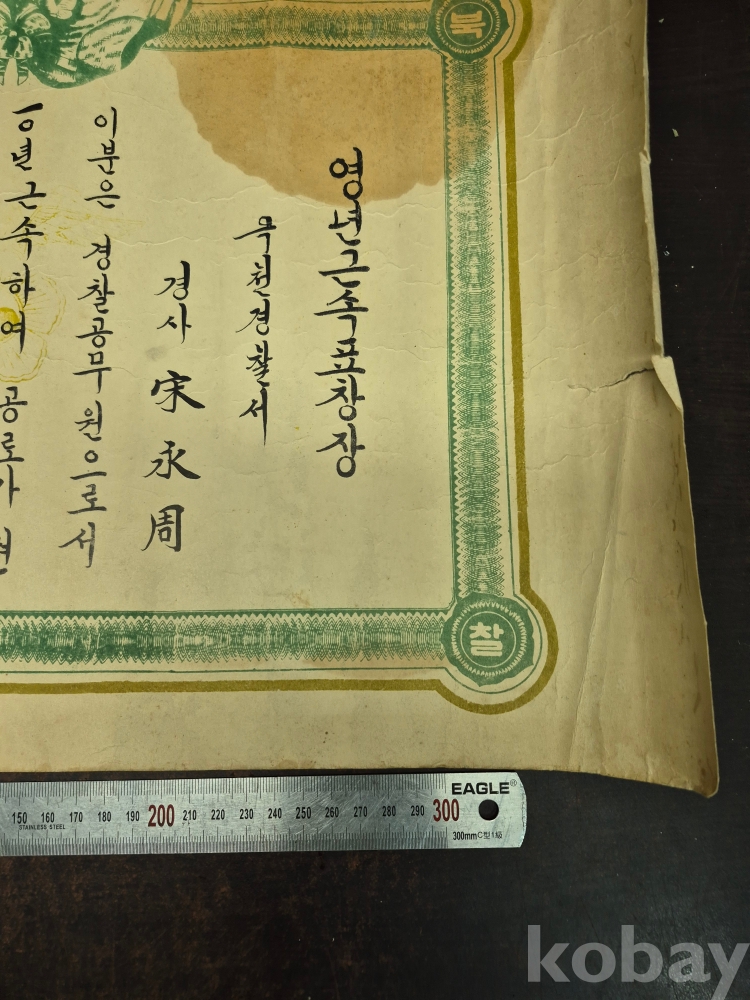 북
영년근속표창장
옥천경찰서
경사 宋永周
이분은 경찰공무원으로서
년근속하여 공로가
찰
EAGLE®
150 160 170 180 190 200 210 220 230 240 250 260 270 280 290 300
STAINLESS STEEL
300mm C型1級
kobay